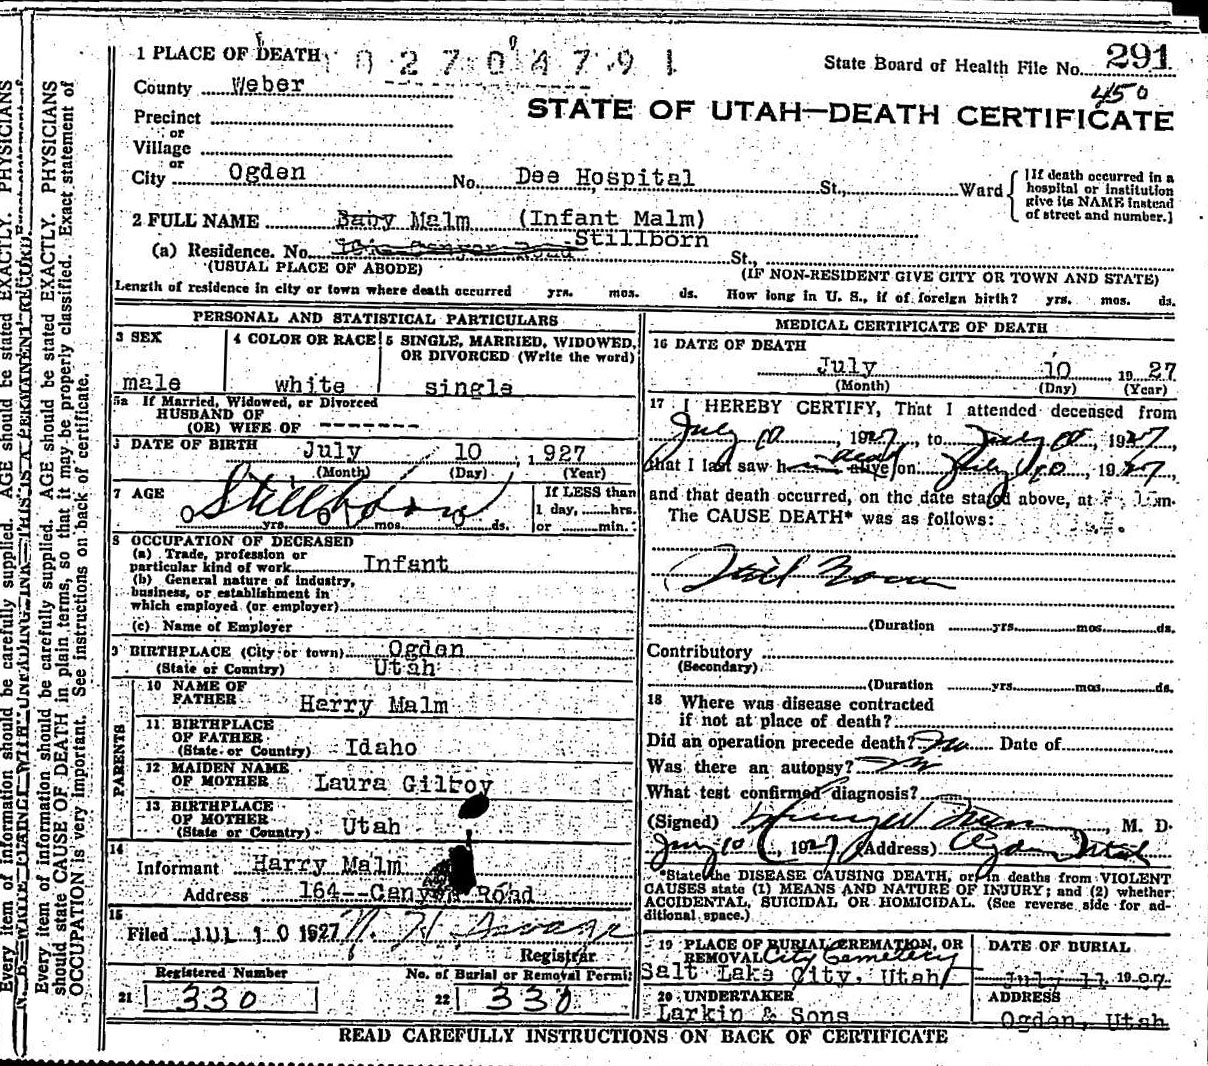 1 PLACE OF DEATH 0 2 7 0 4 7 9 1
State Board of Health File No. 291
County Weber
450
STATE OF UTAH—DEATH CERTIFICATE
Precinct
or
Village
or
City Ogden No. Dee Hospital St., Ward
[If death occurred in a
hospital or institution
give its NAME instead
of street and number.]
2 FULL NAME Baby Malm (Infant Malm)
Stillborn
(a) Residence. No. St.,
(USUAL PLACE OF ABODE) (IF NON-RESIDENT GIVE CITY OR TOWN AND STATE)
Length of residence in city or town where death occurred yrs. mos. ds. How long in U. S., if of foreign birth? yrs. mos. ds.
PERSONAL AND STATISTICAL PARTICULARS
3 SEX
male
4 COLOR OR RACE
white
5 SINGLE, MARRIED, WIDOWED,
OR DIVORCED (Write the word)
single
5a If Married, Widowed, or Divorced
HUSBAND OF
(OR) WIFE OF -------
DATE OF BIRTH July 10, 1927
(Month) (Day) (Year)
7 AGE Stillborn
0 yrs. 0 mos. 0 ds.
If LESS than
1 day, hrs.
or min.
8 OCCUPATION OF DECEASED
(a) Trade, profession or
particular kind of work Infant
(b) General nature of industry,
business, or establishment in
which employed (or employer)
(c) Name of Employer
9 BIRTHPLACE (City or town) Ogden
(State or Country) Utah
PARENTS
10 NAME OF
FATHER Harry Malm
11 BIRTHPLACE
OF FATHER
(State or Country) Idaho
12 MAIDEN NAME
OF MOTHER Laura Gilroy
13 BIRTHPLACE
OF MOTHER
(State or Country) Utah
14
Informant Harry Malm
Address 164--Canyon Road
15
Filed JUL 10 1927 Registrar
Registered Number
21 330
No. of Burial or Removal Permit
22 330
MEDICAL CERTIFICATE OF DEATH
16 DATE OF DEATH
July 10, 1927
(Month) (Day) (Year)
17 I HEREBY CERTIFY, That I attended deceased from
July 10, 1927, to July 10, 1927,
that I last saw him dead alive on July 10, 1927
and that death occurred, on the date stated above, at m.
The CAUSE DEATH* was as follows:
Still Born
(Duration yrs. mos. ds.
Contributory
(Secondary)
(Duration yrs. mos. ds.
18 Where was disease contracted
if not at place of death?
Did an operation precede death? No Date of
Was there an autopsy? No
What test confirmed diagnosis?
(Signed) , M. D.
July 10, 1927 (Address) Ogden Utah
*State the DISEASE CAUSING DEATH, or in deaths from VIOLENT
CAUSES state (1) MEANS AND NATURE OF INJURY; and (2) whether
ACCIDENTAL, SUICIDAL OR HOMICIDAL. (See reverse side for ad-
ditional space.)
19 PLACE OF BURIAL, CREMATION, OR
REMOVAL City Cemetery
Salt Lake City, Utah
DATE OF BURIAL
July 11 1927
20 UNDERTAKER
Larkin & Sons
ADDRESS
Ogden, Utah
READ CAREFULLY INSTRUCTIONS ON BACK OF CERTIFICATE
Every item of information should be carefully supplied. AGE should be stated EXACTLY. PHYSICIANS
should state CAUSE OF DEATH in plain terms, so that it may be properly classified. Exact statement of
OCCUPATION is very important. See instructions on back of certificate.